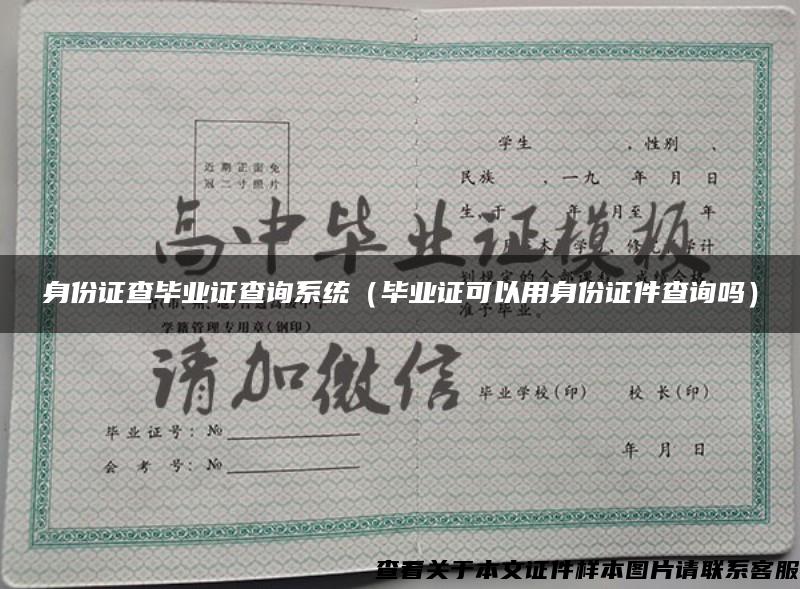 近期正面免
冠二寸照片
学籍管理专用章(钢印)
毕业证号：№
会考号：№
学生 ，性别 、
民族 ，一九 年 月 日
生，于 年 月至 年
准予毕业。
毕业学校(印) 校长(印)
年 月 日
高中毕业证模板
请加微信
身份证查毕业证查询系统（毕业证可以用身份证件查询吗）
查看关于本文证件样本图片请联系客服